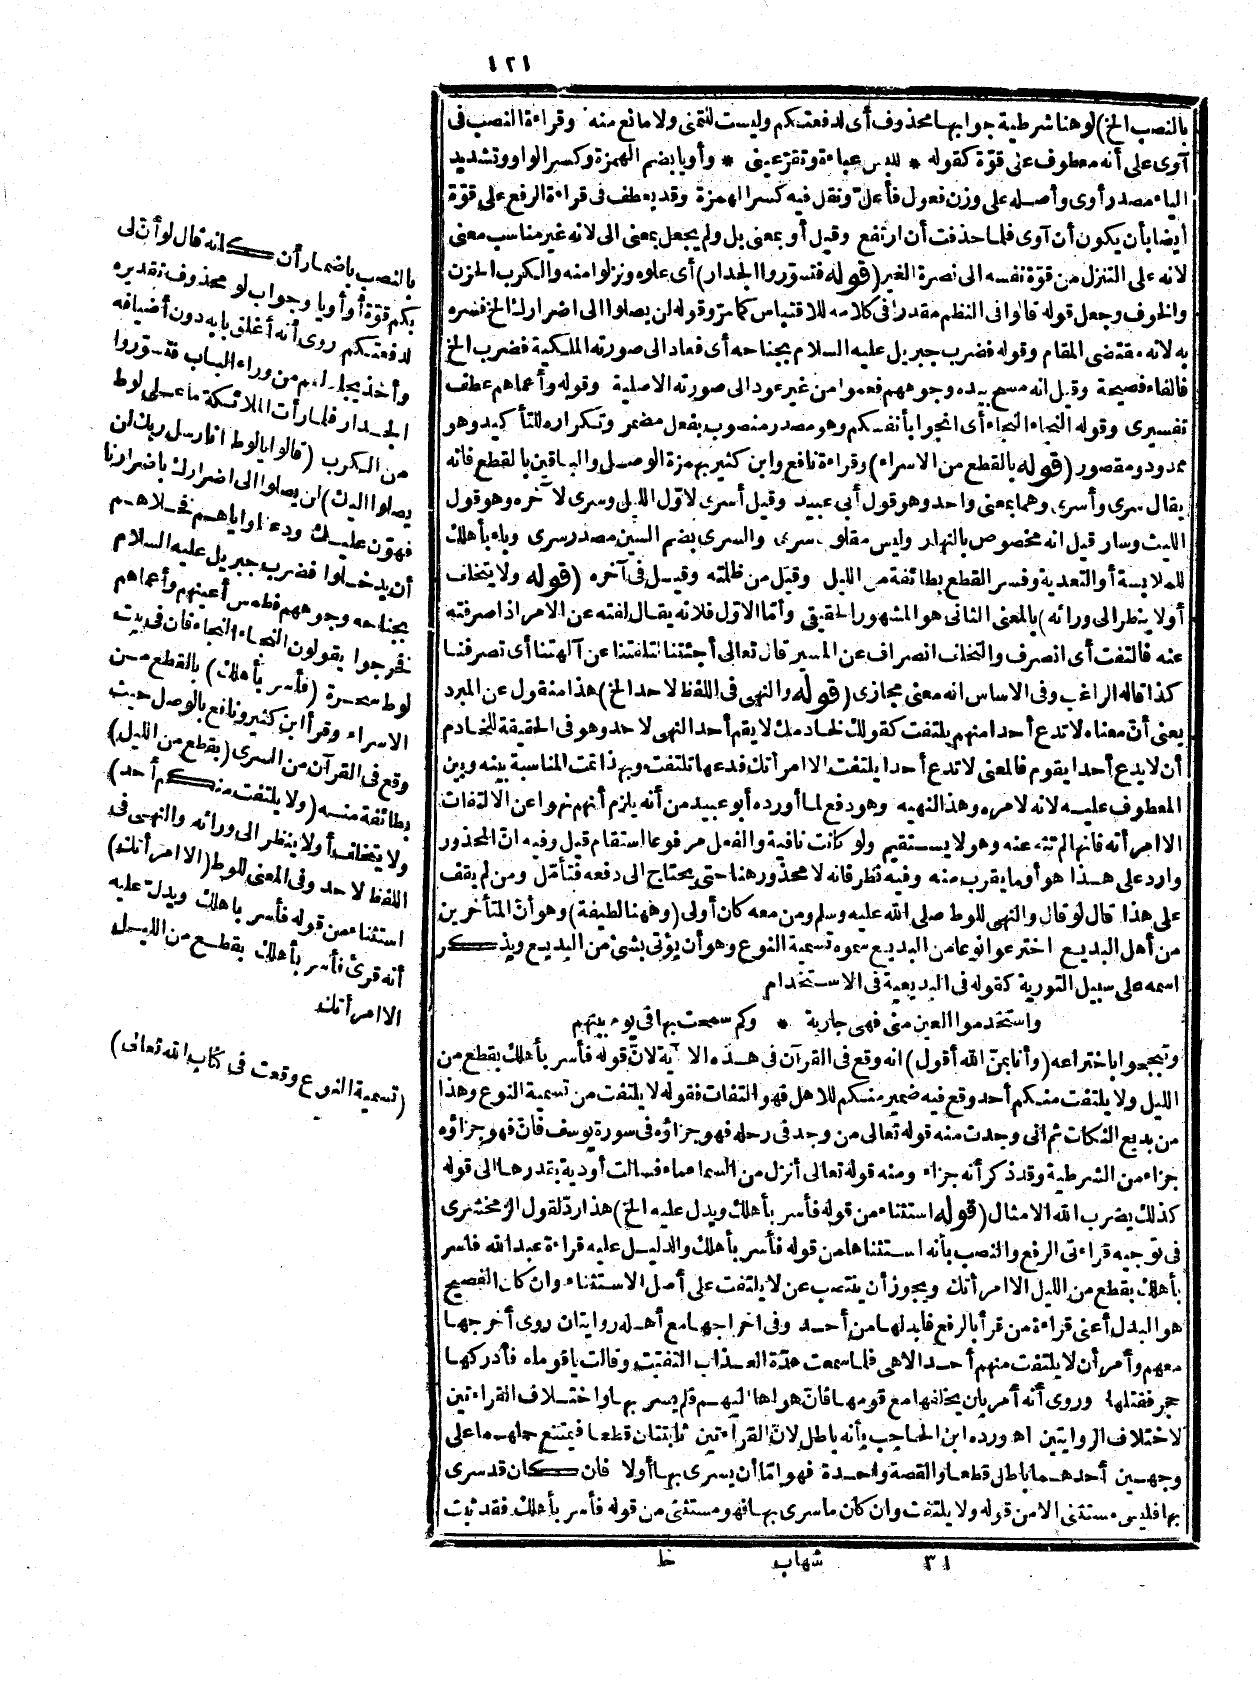 ١٢١
بالنصب الخ) لو هنا شرطية جوابها محذوف أى لدفعتكم وليست للتمنى ولا مانع منه وقراءة النصب فى
آوى على أنه معطوف على قوّة كقوله * للبس عباءة وتقرّ عينى * وأويا بضم الهمزة وكسر الواو وتشديد
الياء مصدر أوى وأصله على وزن فعول فأعلّ ونقل فيه كسر الهمزة وقد يعطف فى قراءة الرفع على قوّة
أيضا بأن يكون أن آوى فلما حذفت أن ارتفع وقيل أو بمعنى بل ولم يجعل بمعنى الى لانه غير مناسب معنى
لانه على التنزل من قوّة نفسه الى نصرة الغير (قوله فتسوّروا الجدار) أى علوه ونزلوا منه والكرب الحزن
والخوف وجعل قوله قالوا فى النظم مقدرا فى كلامه للاقتباس كما مرّ وقوله لن يصلوا الى اضرارك الخ فسره
به لانه مقتضى المقام وقوله فضرب جبريل عليه السلام بجناحه أى فعاد الى صورته الملكية فضرب الخ
فالفاء فصيحة وقيل انه مسح بيده وجوههم فعموا من غير عود الى صورته الاصلية وقوله وأعماهم عطف
تفسيرى وقوله النجاء النجاء أى انجوا بأنفسكم وهو مصدر منصوب بفعل مضمر وتكراره للتأكيد وهو
ممدود ومقصور (قوله بالقطع من الاسراء) وقراءة نافع وابن كثير بهمزة الوصل والباقين بالقطع فانه
يقال سرى وأسرى وهما بمعنى واحد وهو قول أبى عبيد وقيل أسرى لاوّل الليل وسرى لآخره وهو قول
الليث وسار قيل انه مخصوص بالنهار وليس مقلوب سرى والسرى بضم السين مصدر سرى وباء بأهلك
للملابسة أو التعدية وفسر القطع بطائفة من الليل وقيل من ظلمته وقيل فى آخره (قوله ولا يتخلف
أو لا ينظر الى ورائه) بالمعنى الثانى هو المشهور الحقيقى وأمّا الاوّل فلانه يقال لفته عن الامر اذا صرفته
عنه فالتفت أى انصرف والتخلف انصراف عن المسير قال تعالى أجئتنا لتلفتنا عن آلهتنا أى تصرفنا
كذا قاله الراغب وفى الاساس انه معنى مجازى (قوله والنهى فى اللفظ لاحد الخ) هذا منقول عن المبرد
يعنى أنّ معناه لا تدع أحدا منهم يلتفت كقولك لخادمك لا يقم أحد النهى لاحد وهو فى الحقيقة للخادم
أن لا يدع أحدا يقوم فالمعنى لا تدع أحدا يلتفت الا امرأتك فدعها تلتفت وبهذا تمت المناسبة بينه وبين
المعطوف عليه لانه لامره وهذا النهيه وهو دفع لما أورده أبو عبيد من أنه يلزم أنهم نهوا عن الالتفات
الا امرأته فانها لم تنه عنه وهو لا يستقيم ولو كانت نافية والفعل مرفوعا استقام قيل وفيه انّ المحذور
وارد على هذا هو أو ما يقرب منه وفيه نظر فانه لا محذور هنا حتى يحتاج الى دفعه فتأمّل ومن لم يقف
على هذا قال لو قال والنهى للوط صلى الله عليه وسلم ومن معه كان أولى (وههنا لطيفة) وهو أنّ المتأخرين
من أهل البديع اخترعوا نوعا من البديع سموه تسمية النوع وهو أن يؤتى بشئ من البديع ويذكر
اسمه على سبيل التورية كقوله فى البديعية فى الاستخدام
واستخدموا العين منى فهى جارية * وكم سمعت بها فى يوم بينهم
وتبجحوا باختراعه (وأنا بمنّ الله أقول) انه وقع فى القرآن فى هذه الآية لانّ قوله فأسر بأهلك بقطع من
الليل ولا يلتفت منكم أحد وقع فيه ضمير منكم للاهل فهو التفات فقوله لا يلتفت من تسمية النوع وهذا
من بديع النكات ثم انى وجدت منه قوله تعالى من وجد فى رحله فهو جزاؤه فى سورة يوسف فانّ فهو جزاؤه
جزاء من الشرطية وقد ذكر أنه جزاء ومنه قوله تعالى أنزل من السماء ماء فسالت أودية بقدرها الى قوله
كذلك يضرب الله الامثال (قوله استثناء من قوله فأسر بأهلك ويدل عليه الخ) هذا ردّ لقول الزمخشرى
فى توجيه قراءتى الرفع والنصب بأنه استثناها من قوله فأسر بأهلك والدليل عليه قراءة عبد الله فأسر
بأهلك بقطع من الليل الا امرأتك ويجوز أن ينتصب عن لا يلتفت على أصل الاستثناء وان كان الفصيح
هو البدل أعنى قراءة من قرأ بالرفع فابدلها من أحد وفى اخراجها مع أهله روايتان روى أخرجها
معهم وأمر أن لا يلتفت منهم أحد الا هى فلما سمعت هدّة العذاب التفتت وقالت يا قوماه فأدركها
حجر فقتلها وروى أنه أمر بان يخلفها مع قومها فانّ هواها اليهم فلم يسر بها واختلاف القراءتين
لاختلاف الروايتين اه ورده ابن الحاجب بأنه باطل لانّ القراءتين ثابتتان قطعا فيمتنع حملهما على
وجهين أحدهما باطل قطعا والقصة واحدة فهو امّا أن يسرى بها أولا فان كان قد سرى
بها فليس مستثنى الا من قوله ولا يلتفت وان كان ما سرى بها فهو مستثنى من قوله فأسر بأهلك فقد ثبت
٣١ شهاب خا
بالنصب باضمار أن كانه قال لو أن لى
بكم قوّة أو أويا وجواب لو محذوف تقديره
لدفعتكم روى أنه أغلق بابه دون أضيافه
وأخذ يجادلهم من وراء الباب فتسوّروا
الجدار فلما رأت الملائكة ما على لوط
من الكرب (قالوا يا لوط انا رسل ربك لن
يصلوا اليك) لن يصلوا الى اضرارك باضرارنا
فهوّن عليك ودعنا واياهم فخلاهم
أن يدخلوا فضرب جبريل عليه السلام
بجناحه وجوههم فطمس أعينهم وأعماهم
فخرجوا يقولون النجاء النجاء فان فى بيت
لوط سحرة (فأسر بأهلك) بالقطع من
الاسراء وقرأ ابن كثير ونافع بالوصل حيث
وقع فى القرآن من السرى (بقطع من الليل)
بطائفة منه (ولا يلتفت منكم أحد)
ولا يتخلف أو لا ينظر الى ورائه والنهى فى
اللفظ لاحد وفى المعنى للوط (الا امرأتك)
استثناء من قوله فأسر باهلك ويدل عليه
أنه قرئ فأسر بأهلك بقطع من الليل
الا امرأتك
(تسمية النوع وقعت فى كتاب الله تعالى)